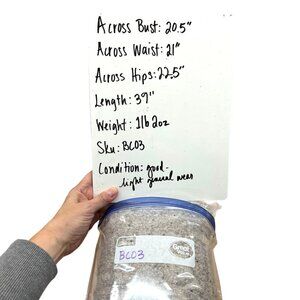 Across Bust: 20.5"
Across Waist: 21"
Across Hips: 22.5"
Length: 39"
Weight: 1lb 2oz
Sku: BC03
Condition: good-
light general wear
BC03
Great